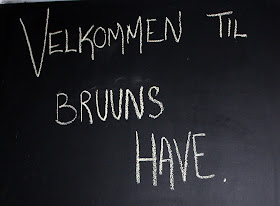 VELKOMMEN TIL
BRUUNS
HAVE.